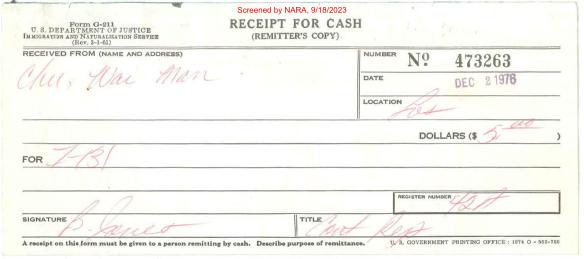 Screened by NARA, 9/18/2023
Form G-211
U. S. DEPARTMENT OF JUSTICE
IMMIGRATION AND NATURALIZATION SERVICE
(Rev. 3-1-61)
RECEIPT FOR CASH
(REMITTER'S COPY)
RECEIVED FROM (NAME AND ADDRESS)
Chu, Wai Man
NUMBER No 473263
DATE DEC 2 1976
LOCATION Los
DOLLARS ($ 5 00 )
FOR I-131
REGISTER NUMBER
SIGNATURE B. Jones
TITLE Cont Rep
A receipt on this form must be given to a person remitting by cash. Describe purpose of remittance.
U. S. GOVERNMENT PRINTING OFFICE : 1974 O - 552-726